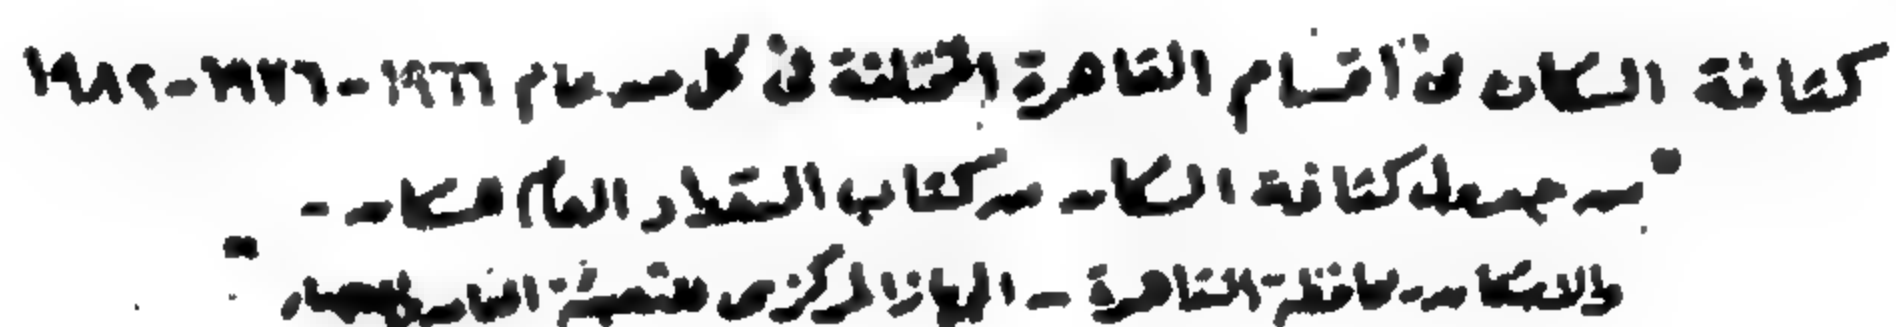 كثافة السكان في أقسام القاهرة المختلفة في كل من عام ١٩٦٦ - ١٩٧٦ - ١٩٨٢
" من جدول كثافة السكان من كتاب التعداد العام للسكان -
والاسكان - محافظة القاهرة - الجهاز المركزى للتعبئة العامة والاحصاء "